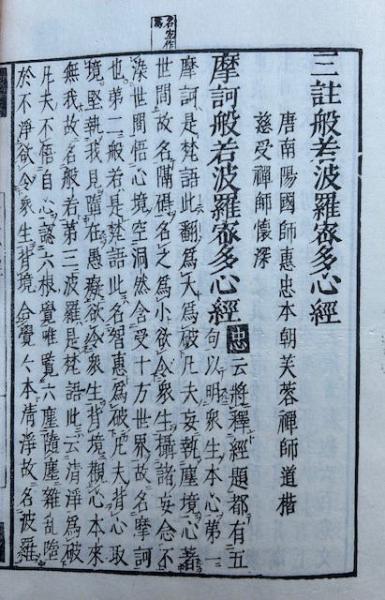 三註般若波羅蜜多心經
唐南陽國師惠忠本朝芙蓉禪師道楷
慈受禪師懷深
摩訶般若波羅蜜多心經 忠云將釋經題都有五
句以明衆生本心第一
摩訶是梵語此翻爲大爲破凡夫妄執塵境心著
世間故名隘礙名之爲小欲令衆生攝諸妄念不
染世間悟心境空洞然含受十方世界故名摩訶
也第二般若是梵語此名智惠爲破凡夫背心取
境堅執我見墮在愚癡欲令衆生背境觀心本來
無我故名般若第三波羅是梵語此云清淨爲破
凡夫不悟自心認六根覺唯覽六塵隨塵雜亂墮
於不淨欲令衆生背境合覺々本清淨故名波羅